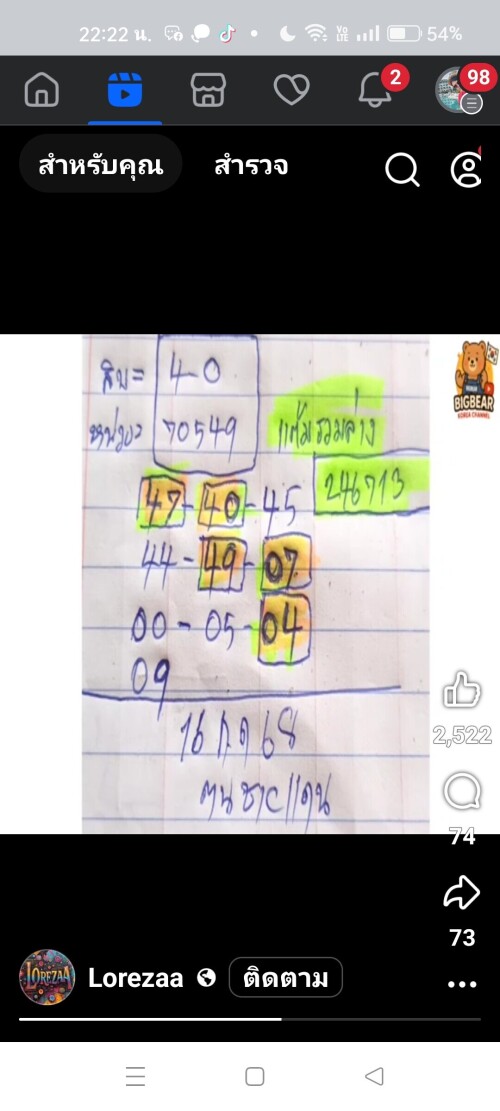 22:22 น.
54%
2
98
สำหรับคุณ
สำรวจ
BIGBEAR
KOREA CHANNEL
สิบ= 40
หน่วย= 70549
แต้มรวมล่าง
246713
47-40-45
44-49-07
00-05-04
09
16 กค 68
2,522
74
73
LOREZAA
Lorezaa
ติดตาม